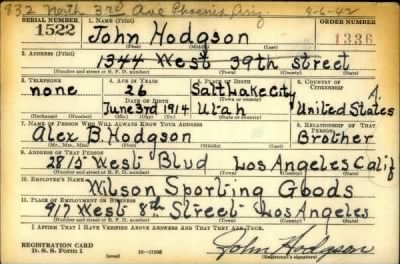 832 North 3rd Ave Phoenix, Ariz 9-6-42
SERIAL NUMBER 1. NAME (Print) ORDER NUMBER
1522 John Hodgson 1336
(First) (Middle) (Last)
2. ADDRESS (Print)
1344 West 39th street
(Number and street or R. F. D. number) (Town) (County) (State)
3. TELEPHONE 4. AGE IN YEARS 5. PLACE OF BIRTH 6. COUNTRY OF CITIZENSHIP
none 26 Salt Lake City A.
DATE OF BIRTH (Town or county)
June 3rd 1914 Utah United States
(Exchange) (Number) (Mo.) (Day) (Yr.) (State or country)
7. NAME OF PERSON WHO WILL ALWAYS KNOW YOUR ADDRESS 8. RELATIONSHIP OF THAT PERSON
Alex B. Hodgson Brother
(Mr., Mrs., Miss) (First) (Middle) (Last)
9. ADDRESS OF THAT PERSON
2815 West Blvd Los Angeles Calif
(Number and street or R. F. D. number) (Town) (County) (State)
10. EMPLOYER'S NAME
Wilson Sporting Goods
11. PLACE OF EMPLOYMENT OR BUSINESS
917 West 8th Street Los Angeles
(Number and street or R. F. D. number) (Town) (County) (State)
I AFFIRM THAT I HAVE VERIFIED ABOVE ANSWERS AND THAT THEY ARE TRUE.
REGISTRATION CARD
D. S. S. Form 1 16-17105 John Hodgson
(Registrant's signature)